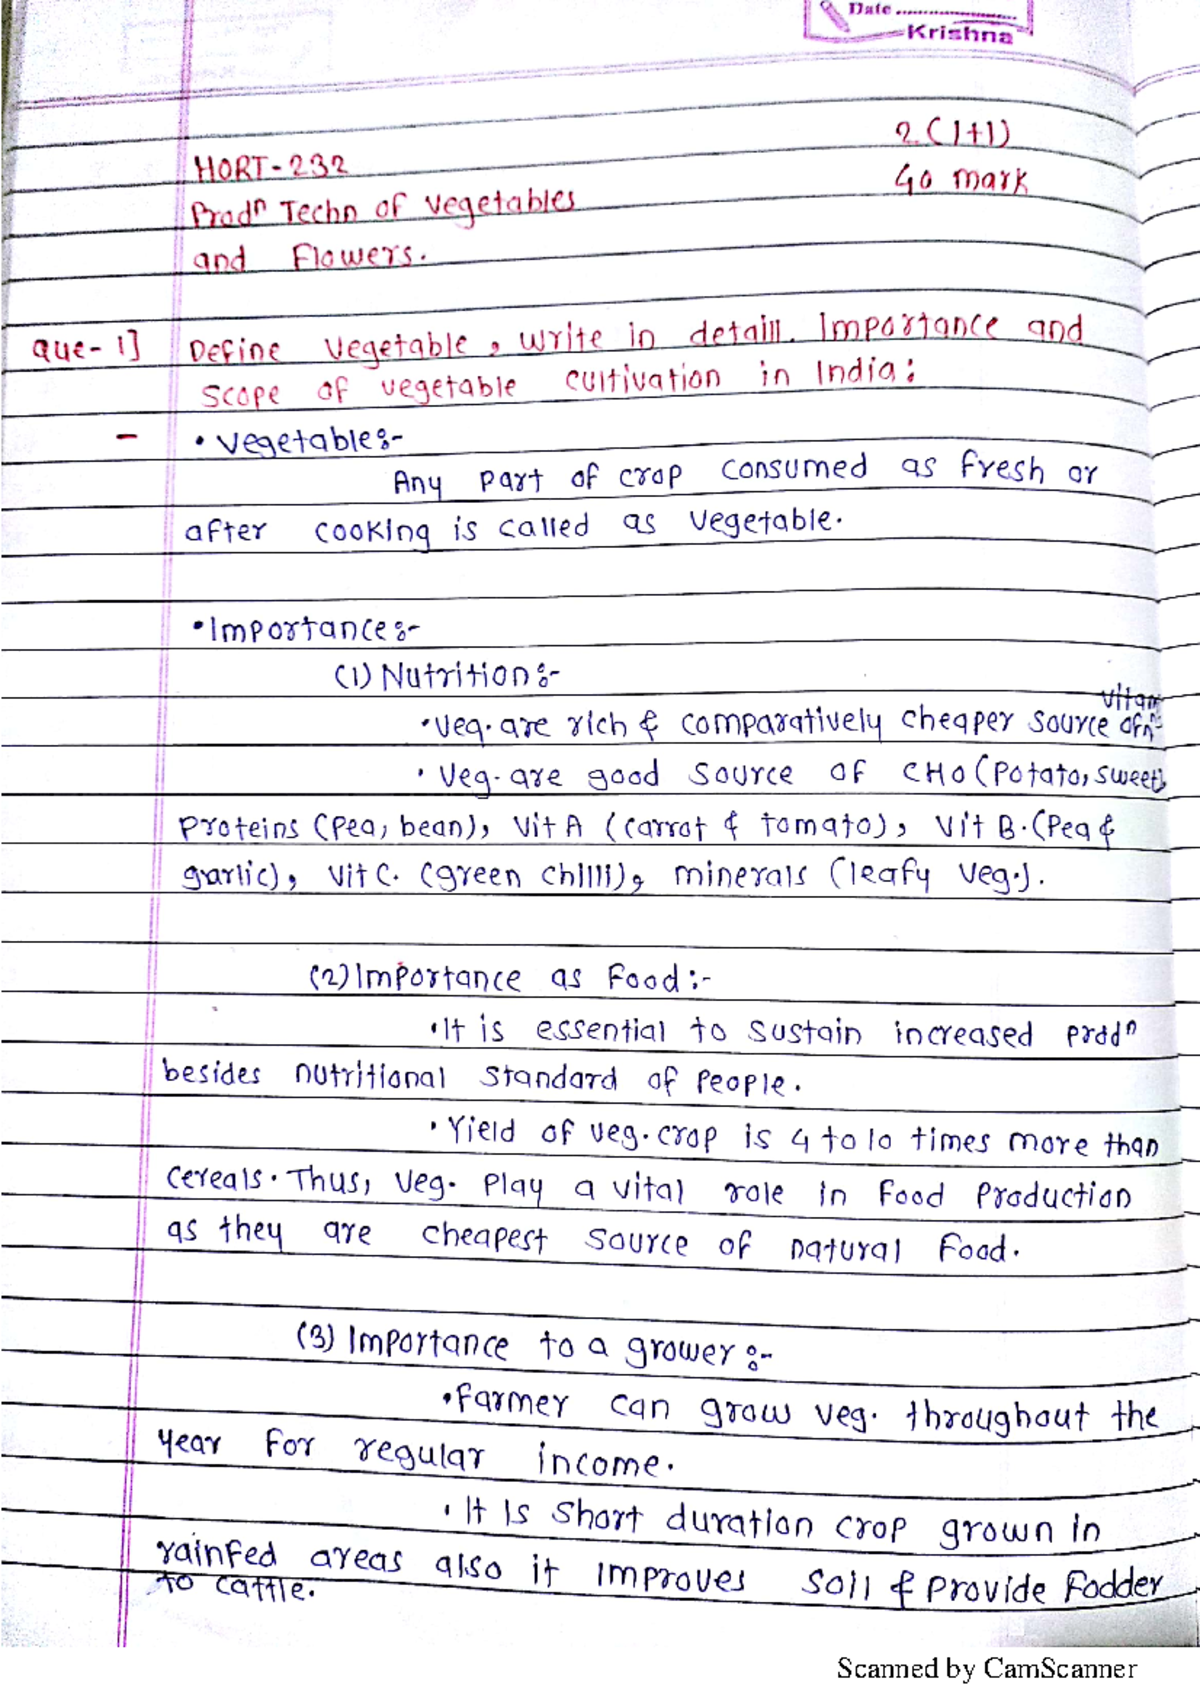 Date
Krishna
HORT-232 2(1+1)
Prodⁿ Techn of vegetables 40 mark
and Flowers.
Que-1] Define Vegetable, write in detaill. Importance and
Scope of vegetable cultivation in India:
- • Vegetable:-
Any part of crop consumed as fresh or
after cooking is called as vegetable.
• Importance:-
(1) Nutrition:-
• Veg. are rich & comparatively cheaper source of
• Veg. are good source of CHO (Potato, sweet
proteins (Pea, bean), Vit A (carrot & tomato), Vit B. (Pea &
garlic), Vit C. (green chilli), minerals (leafy veg.).
(2) Importance as Food:-
• It is essential to sustain increased prodⁿ
besides nutritional standard of people.
• Yield of veg. crop is 4 to 10 times more than
cereals. Thus, veg. play a vital role in food production
as they are cheapest source of natural food.
(3) Importance to a grower:-
• Farmer can grow veg. throughout the
year for regular income.
• It is short duration crop grown in
rainfed areas also it improves soil & provide fodder
to cattle.
Scanned by CamScanner